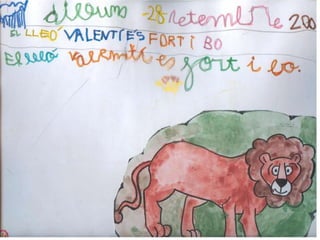 dilluns -28 setembre 200
EL LLEÓ VALENTÍ ES FORT I BO
El lleó Valentí és fort i bo.